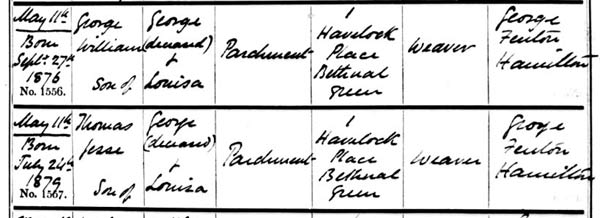 May 11th
Born
Septr 27th
1876
No. 1556.
George
William
Son of
George
(deceased)
+
Louisa
Parchment
1
Havelock
Place
Bethnal
Green
Weaver
George
Fenton
Hamilton
May 11th
Born
July 24th
1879
No. 1567.
Thomas
Jesse
Son of
George
(deceased)
+
Louisa
Parchment
1
Havelock
Place
Bethnal
Green
Weaver
George
Fenton
Hamilton